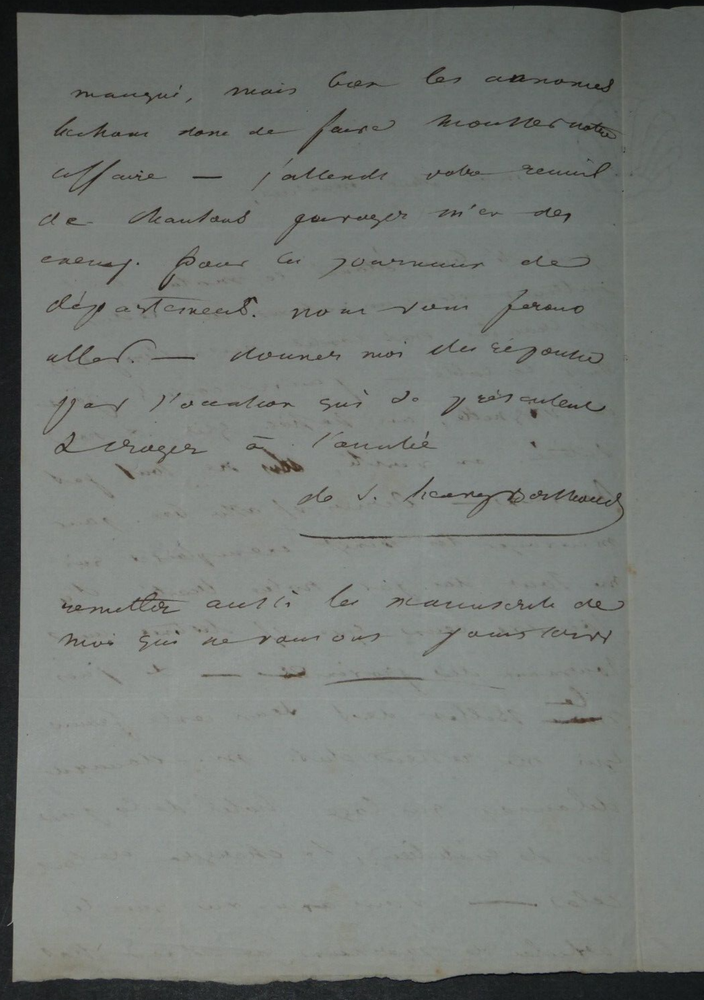 manqué, mais bien les annonces
tachons donc de faire mousser notre
affaire — j'attends votre recueil
de chansons envoyez m'en des
exemp. pour les journaux de
départements. nous vous ferons
aller. — donnez moi des réponses
par l'occasion qui se présentent
& croyez à l'amitié
de S. henry Berthoud
remettez aussi les manuscrits de
moi qui ne vous ont